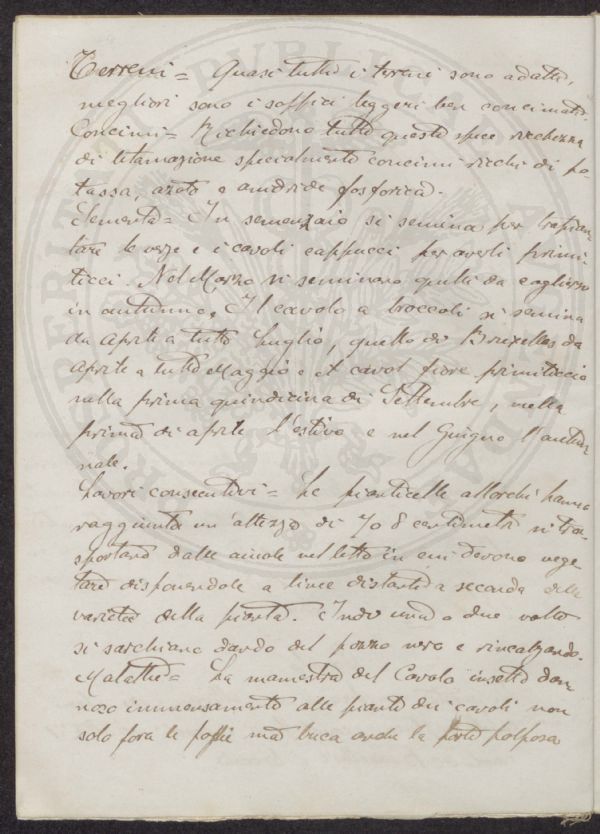 Terreni = Quasi tutti i terreni sono adatti,
migliori sono i soffici leggeri ben concimati.
Concimi = Richiedono tutte queste specie ricchezza
di letamazione specialmente concimi ricchi di po-
tassa, azoto e anidride fosforica.
Sementa = In semenzaio si semina per trapian-
tare le verze e i cavoli cappucci per averli primi-
ticci. Nel Marzo si seminano quelli da cogliersi
in autunno. Il cavolo a broccoli si semina
da Aprile a tutto Luglio, quello di Bruxelles da
Aprile a tutto Maggio e il cavol fiore primiticcio
nella prima quindicina di Settembre, nella
prima di aprile l'estivo e nel Giugno l'autun-
nale.
Lavori consecutivi = Le pianticelle allorchè hanno
raggiunta un'altezza di 7 o 8 centimetri si tra-
sportano dalle aiuole nel letto in cui devono vege-
tare disponendole a linee distanti a seconda delle
varietà della pianta. Indi una o due volte
si sarchiano dando del pozzo nero e rincalzando.
Malattie = La mamestra del Cavolo insetto dan-
noso immensamente alle piante dei cavoli non
solo fora le foglie ma buca anche la parte polposa